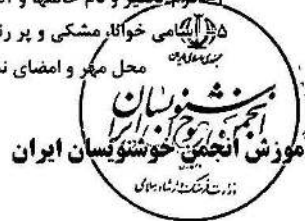 اسامی خوانا، مشکی و پر
محل مهر و امضای
جمهوری اسلامی ایران
انجمن خوشنویسان ایران
آموزش انجمن خوشنویسان ایران
وزارت فرهنگ و ارشاد اسلامی